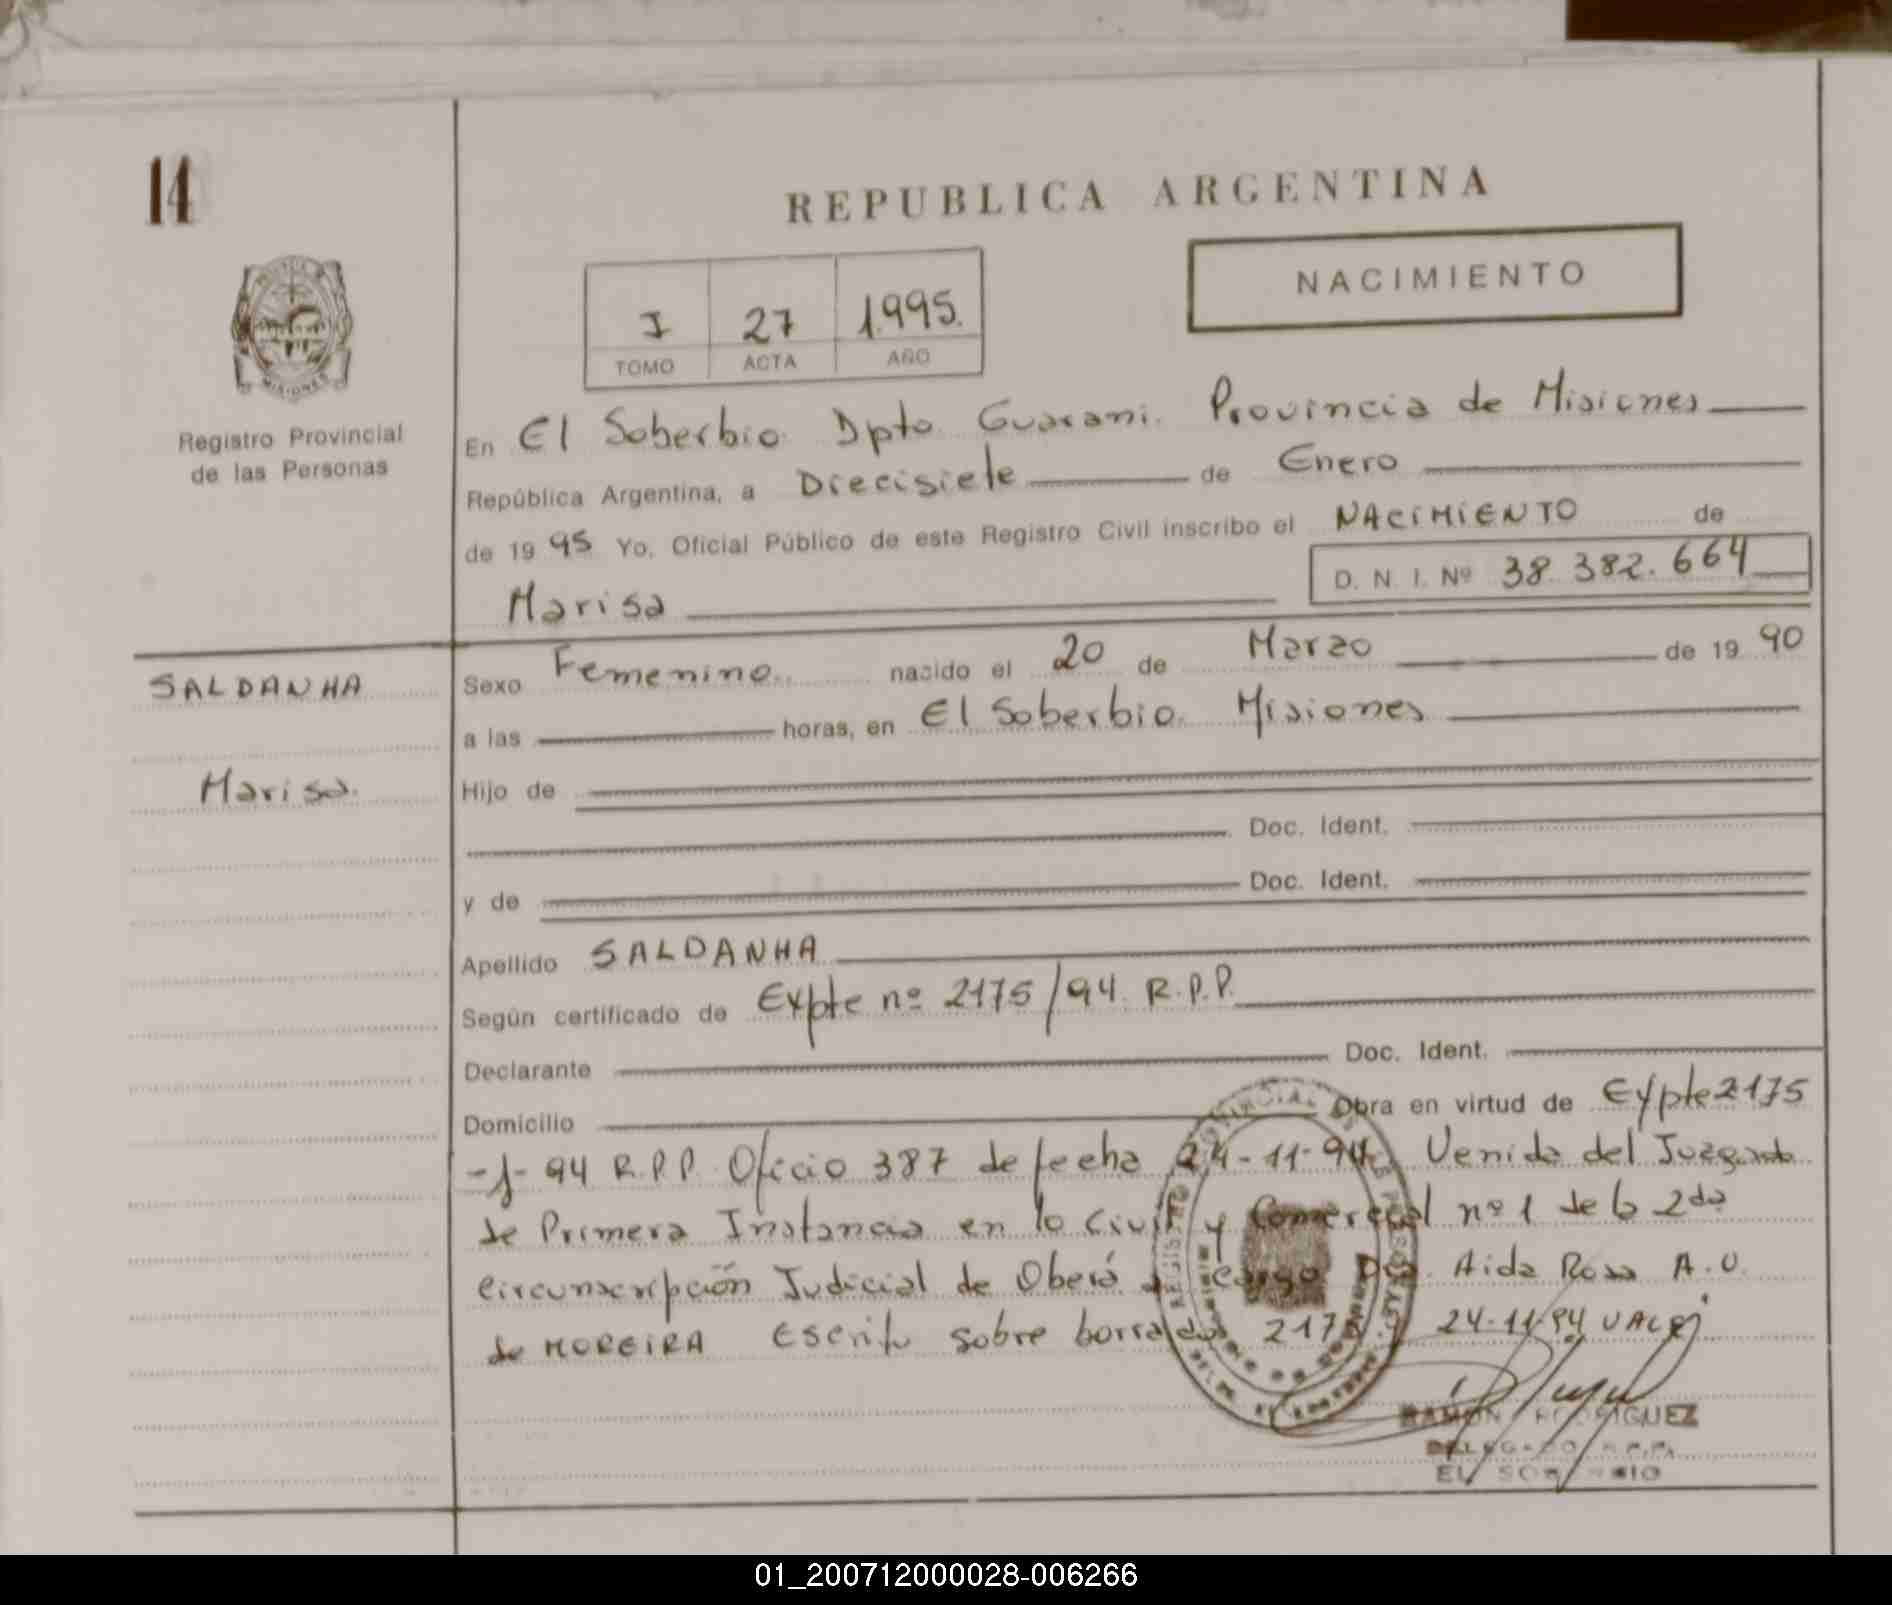 14
REPUBLICA ARGENTINA
NACIMIENTO
I 27 1.995.
TOMO ACTA AÑO
MISIONES
Registro Provincial
de las Personas
En El Soberbio Dpto Guarani. Provincia de Misiones
República Argentina, a Diecisiete de Enero
de 19 95 Yo, Oficial Público de este Registro Civil inscribo el NACIMIENTO de
D. N. I. Nº 38.382.664
Marisa
SALDANHA
Marisa.
Sexo Femenino nacido el 20 de Marzo de 19 90
a las horas, en El Soberbio. Misiones
Hijo de
Doc. Ident.
y de Doc. Ident.
Apellido SALDANHA
Según certificado de Expte nº 2175/94. R.P.P.
Declarante Doc. Ident.
Domicilio Obra en virtud de Expte 2175
-J- 94 R.P.P. Oficio 387 de fecha 24-11-94 Venida del Juzgado
de Primera Instancia en lo Civil y Comercial nº 1 de la 2da
Circunscripción Judicial de Oberá a cargo Dra. Aida Rosa A.U.
de MOREIRA Escrito sobre borrado 2175 24-11-94 VALE
RAMON RODRIGUEZ
DELEGADO R.P.P.
EL SOBERBIO
01_200712000028-006266